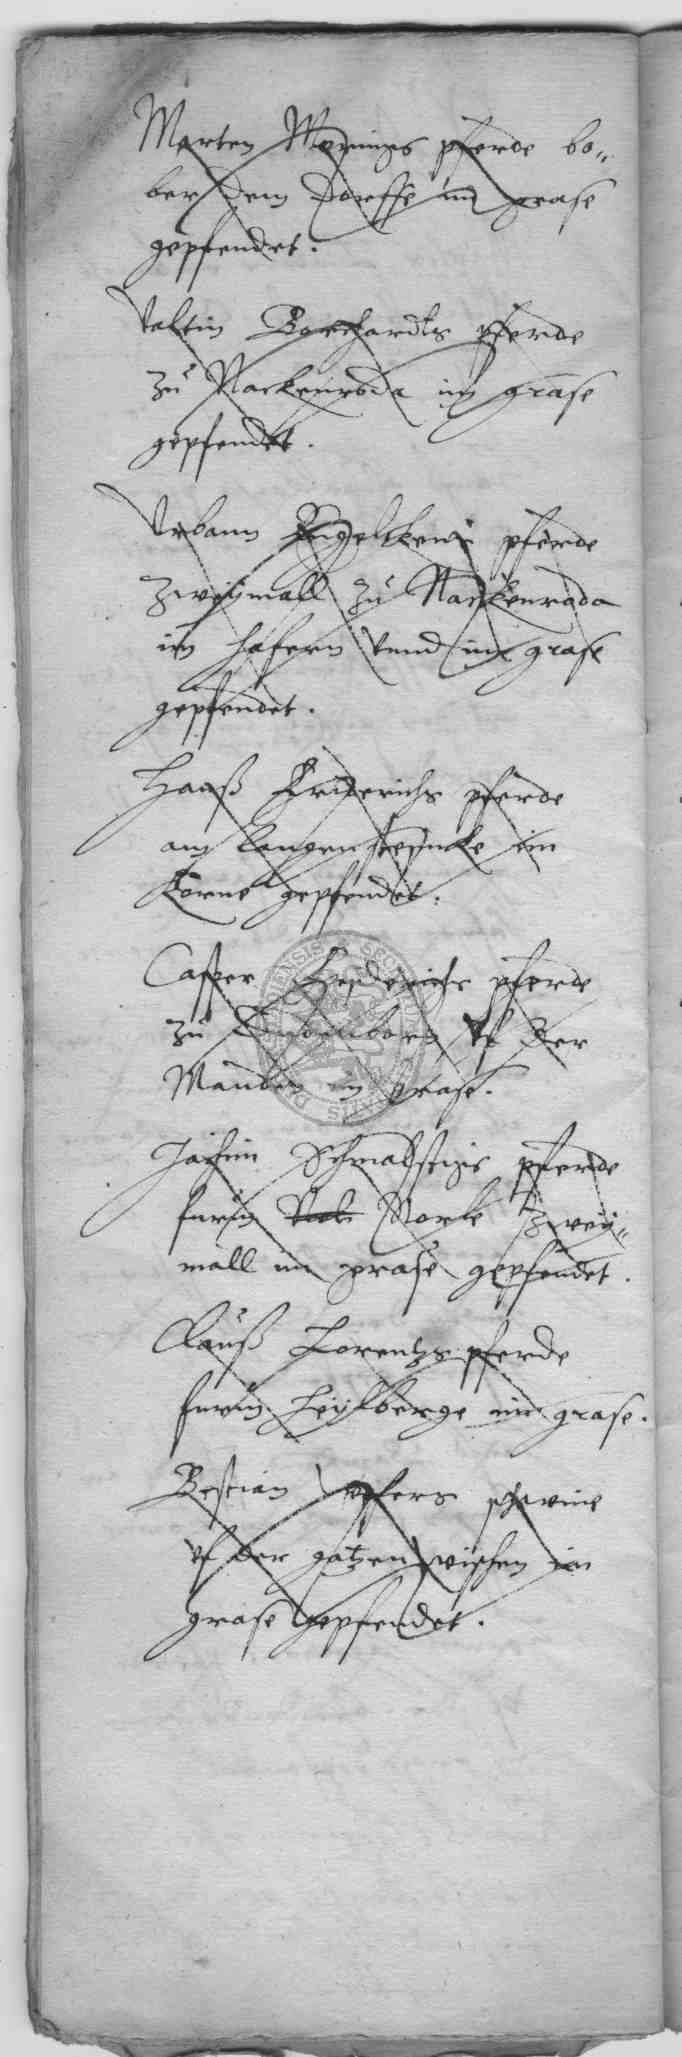 Merten Mönnigs pferde bo-
ber dem Dorffe im grase
gepfendet.
Valtin Borchardts pferde
zu Nackenroda im grase
gepfendet.
Urbann Engelcken pferde
zweymall zu Nackenroda
im hafern vnnd im grase
gepfendet.
Hanß Friderichs pferde
am langen im
Korne gepfendet.
Casper Hedderichs pferde
zu vf der
im grase.
Jochim Schmalstigs pferde
furm Norle zwey-
mall im grase gepfendet.
Clauß Lorentzs pferde
furm Heylberge im grase.
Bestian schweine
vf der gatzen wiesen im
grase gepfendet.